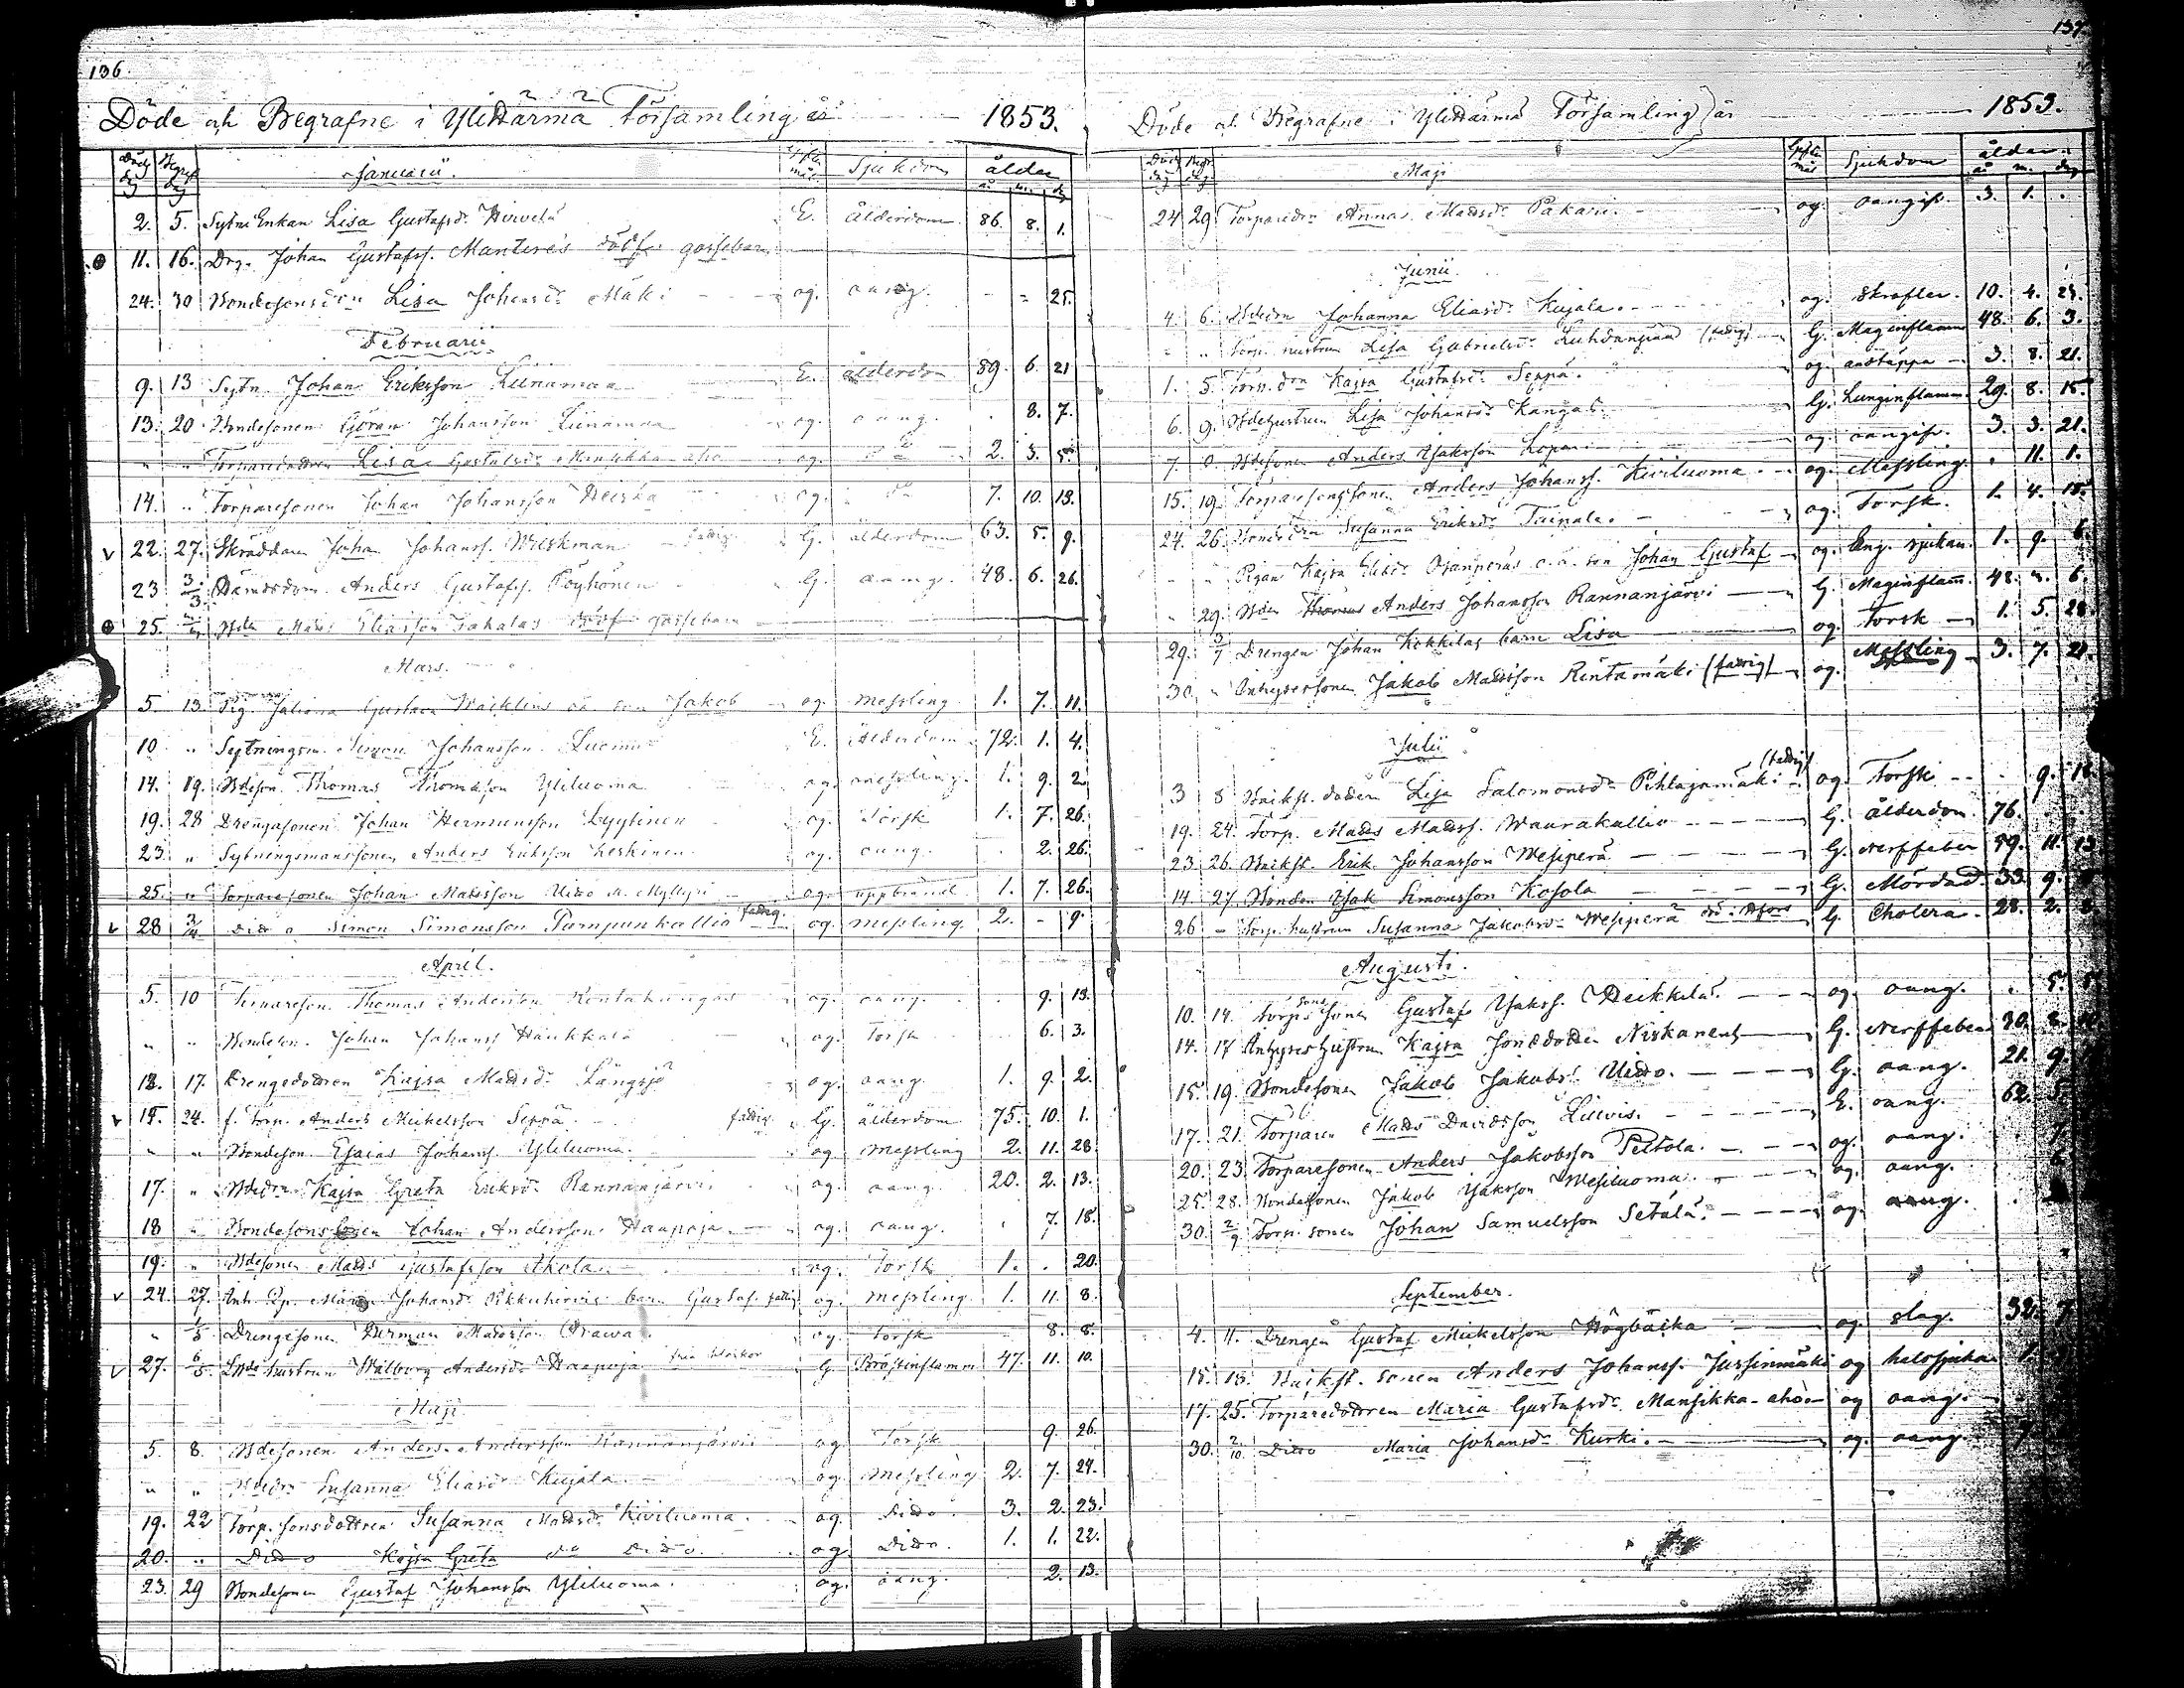 136.
Döde och Begrafne i Ylihärmä Församling år 1853.
Död dag Begr. dag Januarii. Sjukdom ålder
år m. dag
2. 5. Sytn. Enkan Lisa Gustafsd. Hirvelä E. ålderdom 86. 8. 1.
11. 16. Drg. Johan Gustafss. Manteres dödf. gossebarn
24. 30 Bondesonsdrn Lisa Johansdr Mäki og. oang. - - 25.
Februarii
9. 13 Sytn. Johan Eriksson Liinamaa E. ålderdom 89. 6. 21
13. 20. Bondesonen Göran Johansson Liinamaa og. oang. . 8. 7.
" " Torparedottren Lisa Gustafsdr Mansikka-aho og. do 2. 3. 5.
14. " Torparesonen Johan Johansson og. do 7. 10. 13.
v 22. 27. Skräddaren Johan Johanss. Weskman fattig. G. ålderdom 63. 5. 9.
23 3/3 Anders Gustafss. Köyhönen G. oang. 48. 6. 26.
25. Mats Eliasson Takalas dödf. gossebarn
Mars.
5. 13. Pig. Gustava oä son Jakob og. messling 1. 7. 11.
10 " Sytningsm. Simon Johansson Luoma E. Ålderdom. 72. 1. 4.
14. 19. Bdeson. Thomas Thomasson Yliluoma og. messling. 1. 9. 2.
19. 28 Drengasonen Johan Hermansson Lyytinen og. Torsk 1. 7. 26.
23. " Sytningsmanssonen Anders Eriksson Leskinen og. oang. . 2. 26.
25. " Torparesonen Johan Matsson og. uppbränd 1. 7. 26.
v 28 3/4 Dido Simon Simonsson Pumpunkallio fattig. og. messling. 2. - 9.
April.
5. 10 Thomas Andersson Rontakangas og. oang. . 9. 13.
" " Bondeson. Johan Johanss. Haukkala og. Torsk . 6. 3.
13. 17. Drengedottren Kajsa Matsdr Långsjö og. oang. 1. 9. 2.
v 15. 24. f. Torp. Anders Mickelsson Seppä fattig. G. ålderdom 75. 10. 1.
" " Bondeson. Esaias Johanss. Yliluoma og. messling 2. 11. 28
17. " Bdedrn Kajsa Greta Eriksdr Rannanjärvi og. oang. 20. 2. 13.
18 " Bondesonssonen Johan Andersson Haapoja og. oang. . 7. 18.
19. " Bdesonen Mats Gustafsson Akola og. Torsk 1. . 20.
v 24. 27. Inh. Johansdr Pikkuhirvis barn Gustaf fattig og. messling 1. 11. 8.
" 1/5 Drengesonen Herman Matsson Orawa og. Torsk 8. 8.
v 27. 6/5 Bde hustrun Walborg Andersdr Haapoja G. Bröstinflamm 47. 11. 10.
Maji
5. 8. Bdesonen Anders Andersson Rannanjärvi og. Torsk 9. 26.
" " Bdedrn Susanna Eliasdr Kujala og. messling 2. 7. 24.
19. 22 Torp. sonsdottren Susanna Matsdr Kiviluoma og. Dido. 3. 2. 23.
20. " Dido Kajsa Greta do Dido. og. Dido. 1. 1. 22.
23. 29 Bondesonen Gustaf Johansson Yliluoma. og. oang. 2. 13.
137
Döde och Begrafne i Ylihärmä Församling år 1853.
Död dag Begr. dag Maji Sjukdom ålder
år m. dag
24 29 Torparedr. Anna Matsdr Pakari. og. oangif. 3. 1. .
Junii.
4. 6. Bdedrn Johanna Eliasdr Kujala. og. Skrofler. 10. 4. 25.
" " Torp. hustrun Lisa Gabrielsdr Luhdanpää (fattig) G. Maginflamm 48. 6. 3.
1. 5. Torp. drn Kajsa Gustafsdr Seppä. og. andtäppa 3. 8. 21.
6. 9. Bdehustrun Lisa Johansdr Kangas. G. Lunginflamm. 29. 8. 15.
7. Bdesonen Anders Isaksson Kopari og. oangif. 3. 3. 21.
15. 19. Torparesonssonen Anders Johanss. Kiviluoma og. Messling. . 11. 1.
24. 26. Bondedrn Susanna Eriksdr Taipale. og. Torsk. 1. 4. 15.
" " Pigan Kajsa Eliedr Ojanperäs o.ä. son Johan Gustaf og. Eng. sjukan. 1. 9. 6.
" 29. Bden Anders Johansson Rannanjärvi G. Maginflam 48. 6.
29. 3/7 Drengen Johan Kokkilas barn Lisa og. Torsk 1. 5. 28.
30. " Inhysessonen Jakob Matsson Rintamäki (fattig) og. Messling 3. 7. 21.
Julii
3 8 Backst. dottren Lisa Salomonsdr Pihlajamäki (fattig) og. Torsk . 9. 12
19. 24. Torp. Mats Matss. Waurakallio G. ålderdom. 76.
23. 26. Backst. Erik Johansson Wesiperä G. Nerffeber 59. 11. 13
14. 27. Bonden Isak Simonsson Kosola G. Mördad. 33. 9.
26 " Torp. hustrun Susanna Jakobsdr Wesiperä G. Cholera. 28. 2. 8.
Augusti.
10. 14. Torp. sons sonen Gustaf Isakss. Heikkilä. og. oang. . 5. 5
14. 17 Inhyseshustrun Kajsa Jonædotter Niskanen G. Nerffeber 30. 8.
15. 19. Bondesonen Jakob Jakobs. G. oang. 21. 9
17. 21. Torparen Mats Davidsson Luovis. E. oang. 62. 5.
20. 23. Torparesonen Anders Jakobsson Peltola. og. oang.
25. 28. Bondesonen Jakob Isaksson Wesiluoma. og. oang.
30. 2/9 Torp. sonen Johan Samuelsson Setälä. og. oang.
September.
4. 11. Drengen Gustaf Mickelsson Högbacka og. slag. 32. 7
15. 18. Backst. sonen Anders Johanss. Jussinmäki og halssjuka 1.
17. 25. Torparedottren Maria Gustafsdr Mansikka-aho og oang.
30. 2/10 Dido Maria Johansdr Kurki. og. oang.